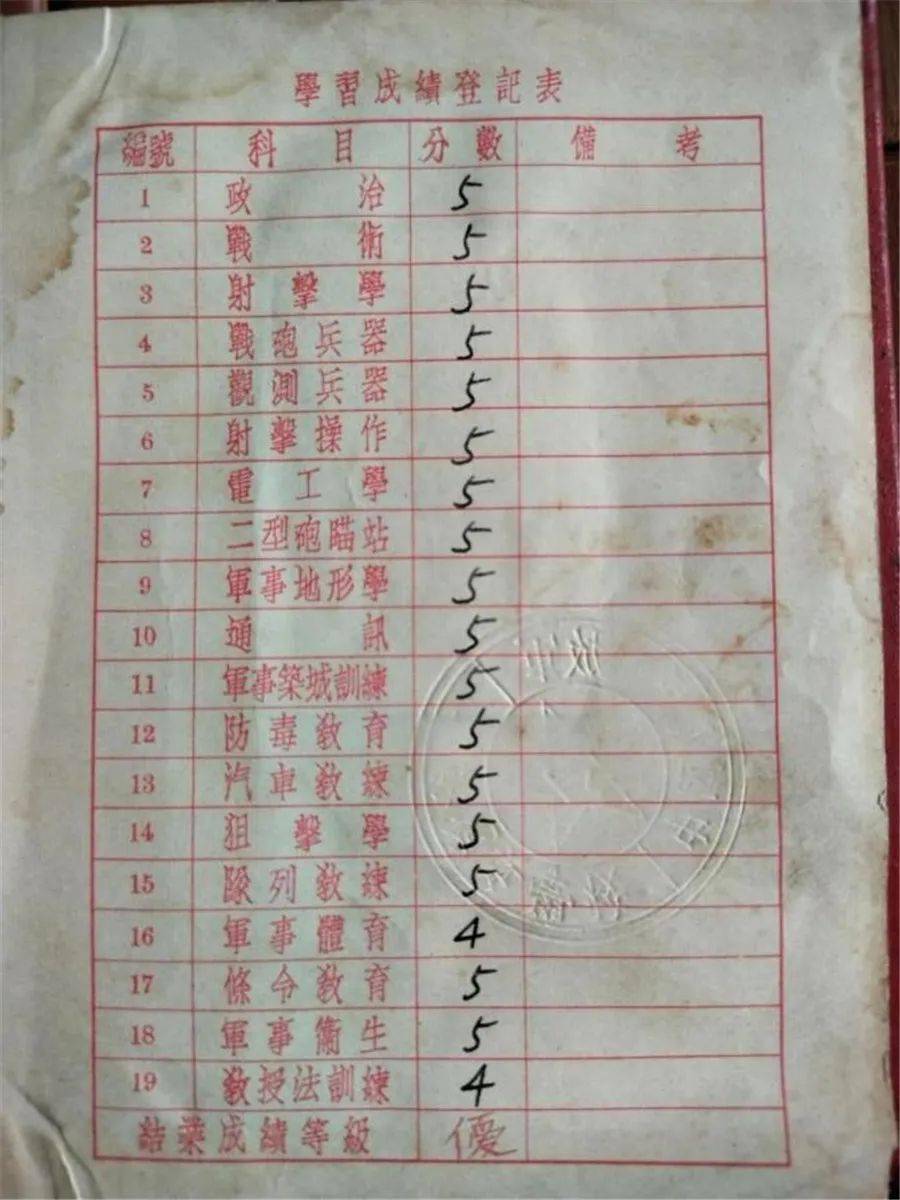 學習成績登記表
編號 科目 分數 備考
1 政治 5
2 戰術 5
3 射擊學 5
4 戰砲兵器 5
5 觀測兵器 5
6 射擊操作 5
7 電工學 5
8 二型砲瞄站 5
9 軍事地形學 5
10 通訊 5
11 軍事築城訓練 5
12 防毒教育 5
13 汽車教練 5
14 狙擊學 5
15 隊列教練 5
16 軍事體育 4
17 條令教育 5
18 軍事衛生 5
19 教授法訓練 4
結業成績等級 優